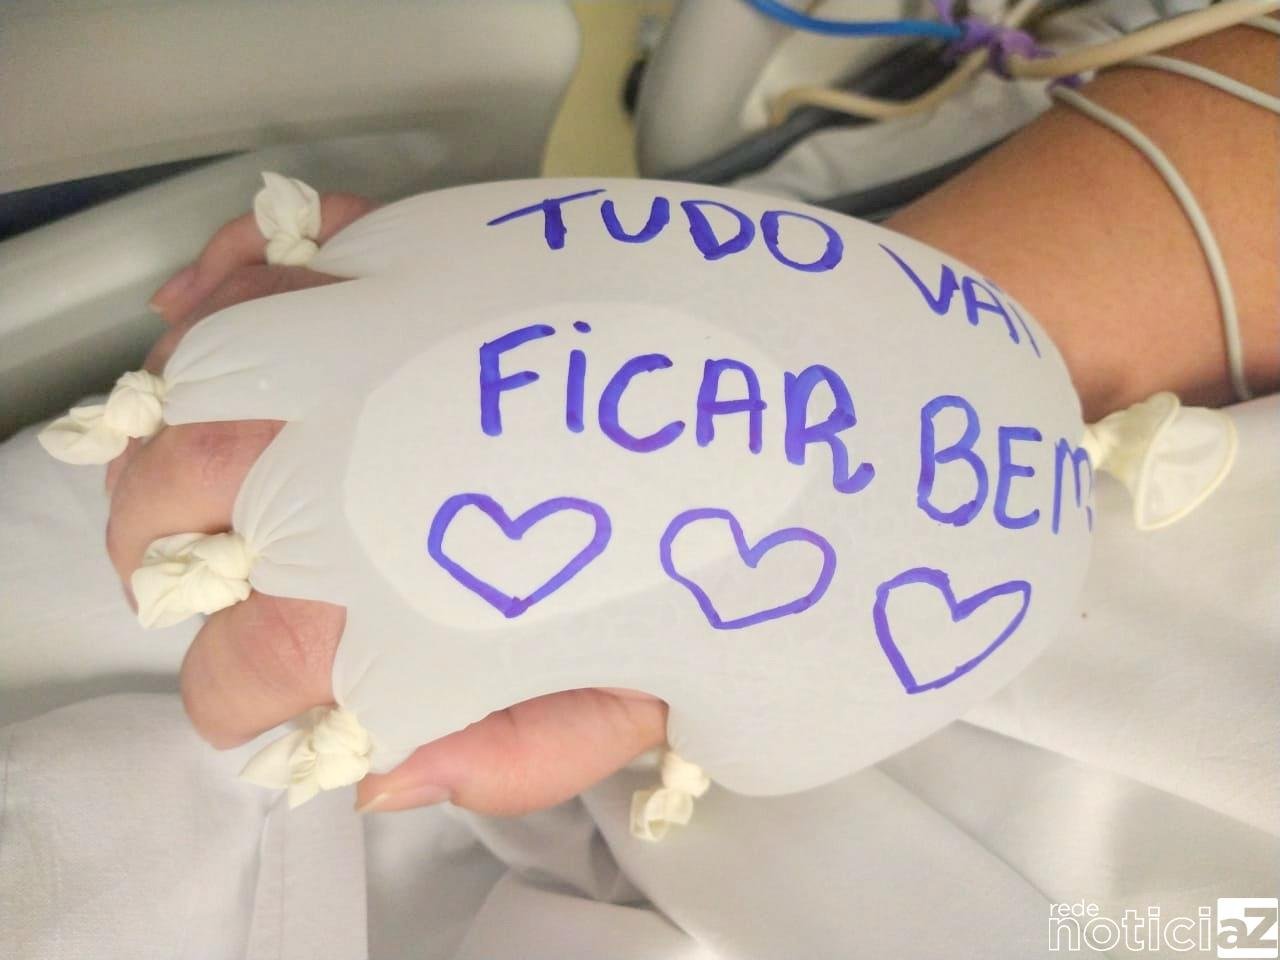 TUDO VAI
FiCAR BEM
rede
noticiaz